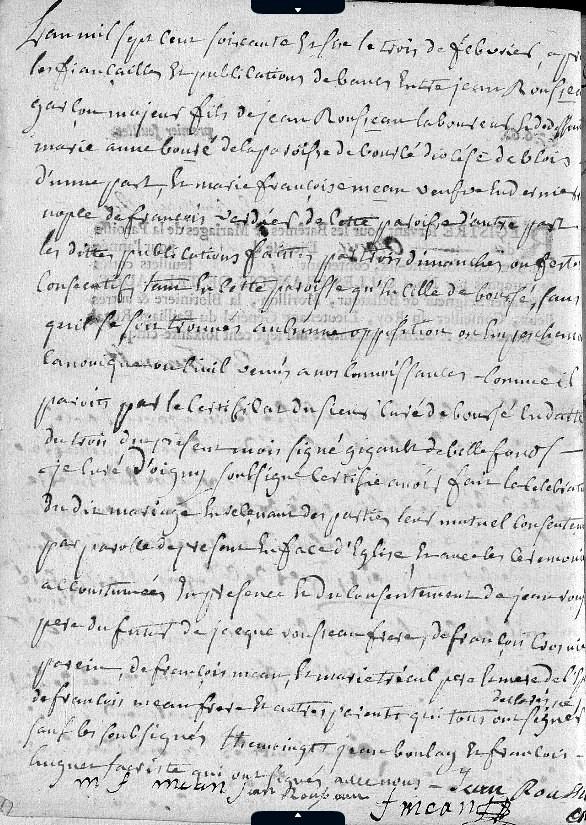 L'an mil sept cent soixante et six le trois de février, apr
les fiançailles et publications de bancs entre jean Rousseau
garçon majeur fils de jean Rousseau laboureur et de deffun
marie anne boursé de la paroisse de boursé diocèse de blois
d'une part, et marie françoise mean veufve en dernie
nopce de françois verdier de cette paroisse d'autre part
les dittes publications faittes par trois dimanches ou feste
consecutifs tant en cette paroisse qu'en celle de boursé, sans
qu'il se soit trouvé aucune opposition ou empeschem
canonique ou civil venus a nos connoissances comme il
paroist par le certificat du sieur curé de boursé en datte
du trois du présent mois signé gigault de bellefonds
je curé d'oigny soussigné certifie avoir fait la célébrat
du dit mariage en reçevant des parties leur mutuel consentem
par parolle de present en face d'Eglise et avec les ceremoni
accoustumées en presence et du consentement de jean rou
pere du futur de jacque rousseau frere, de françois
parein, de françois mean, et marie trécul pere et mere de l'
de françois mean frere et autres parents qui tous ont
declarés ne
signer
sauf les soubsignés themoings jean boulay et françois
huguet sacriste qui ont signés avec nous
m f mean jean Rousseau jean Rouss
f mean